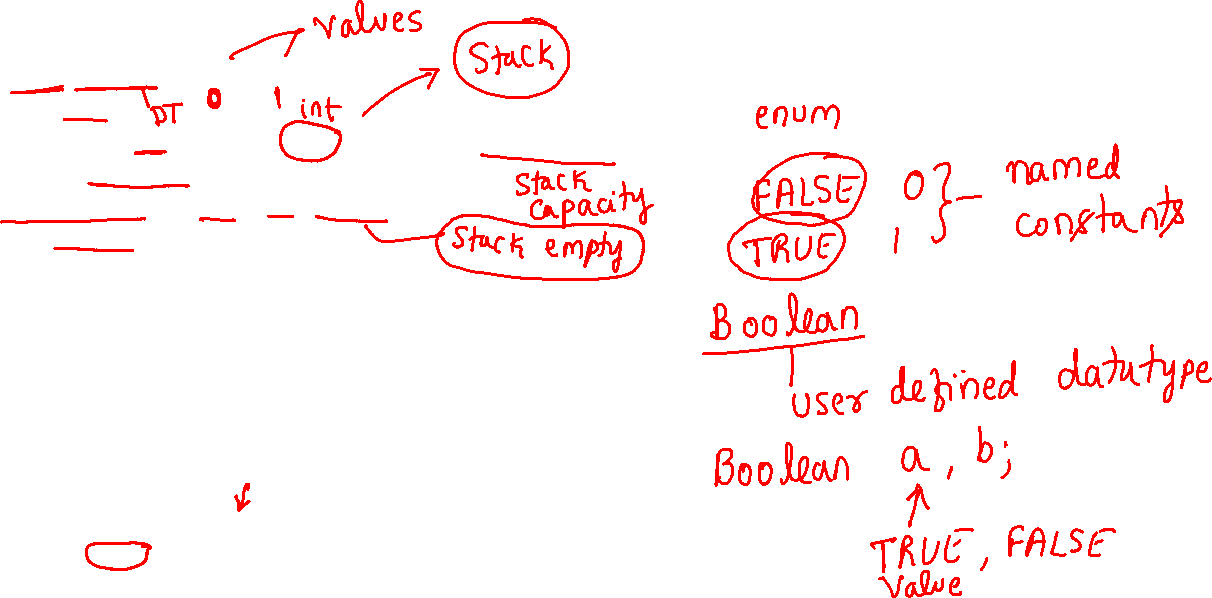 values
Stack
DT 0 1 int
Stack
capacity
Stack empty
enum
FALSE 0 } - named
TRUE , 1 constants
Boolean
user defined datatype
Boolean a, b;
TRUE, FALSE
value